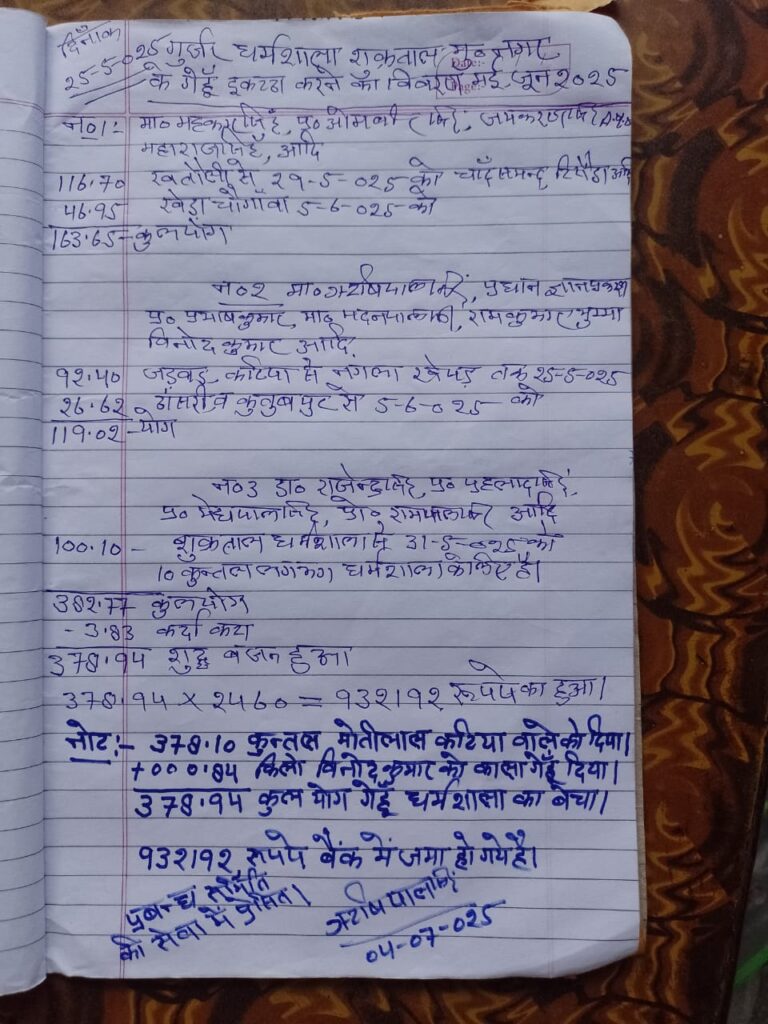 दिनाँक
25-5-025 गुर्जर धर्मशाला शुकताल मु० नगर
के गेहूँ इकट्ठा करने का विवरण मई, जून 2025
न०1:- मा० महकार सिहँ, प्र० ओमवीर सिहँ,
महाराज सिहँ, आदि
116.70 खतौली से 29-5-025 को चाँदसमन्द
46.95 खेड़ा चौगाँवा 5-6-025 को
163.65 - कुल योग
न०2 मा० ऋषिपाल सिहँ, प्रधान ज्ञानप्रकाश
प्र० प्रभाष कुमार, मा० मदनपाल सिहँ, रामकुमार भुम्मा
विनोद कुमार आदि,
92.40 जड़वड़ कटिया से नंगला खेपड़ तक 25-5-025
26.62 कुतुबपुर से 5-6-025 को
119.02 - योग
न०3 डा० राजेन्द्र सिहँ, प्र० प्रहलाद सिहँ,
प्र० मेघपाल सिहँ, प्रो० रामपाल सिहँ आदि
100.10 - शुकताल धर्मशाला से 31-5-025 को
10 कुन्तल लगभग धर्मशाला के लिए है।
382.77 कुल योग
- 3.83 कर्दा कटा
378.94 शुद्ध वजन हुआ
378.94 × 2460 = 932192 रूपये का हुआ।
नोट:- 378.10 कुन्तल मोतीलाल कटिया वाले को दिया।
+000.84 किलो विनोद कुमार को काला गेहूँ दिया।
378.94 कुल योग गेहूँ धर्मशाला का बेचा।
932192 रूपये बैंक में जमा हो गये है।
प्रबन्ध समिति
की सेवा में प्रेषित।
ऋषिपाल सिहँ
04-07-025